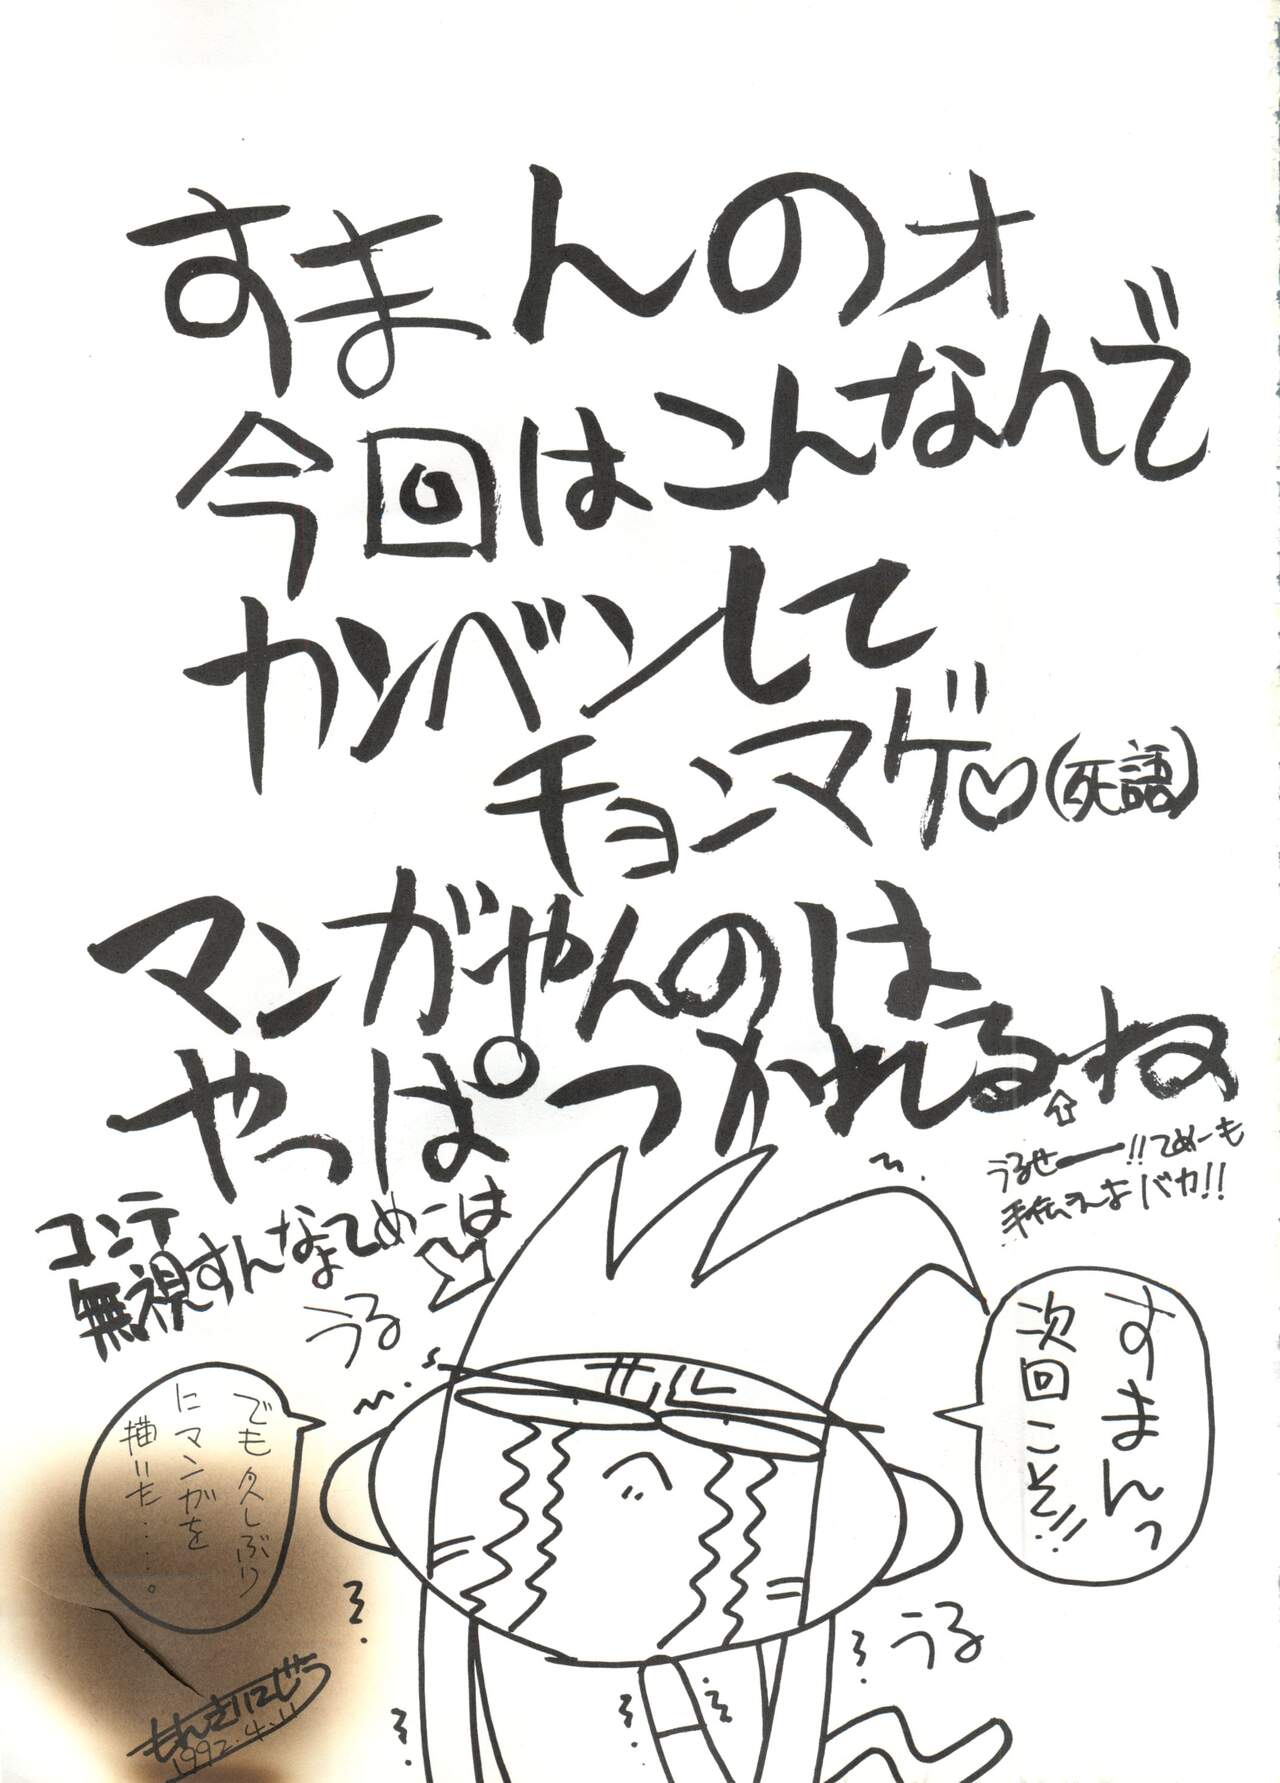 すまんのォ
今回はこんなんで
カンベンして
チョンマゲ♡(死語)
マンガやんのは
やっぱつかれるね
⇧
うるせーー!!てめーも
手伝えよなバカ!!
コンテ
無視すんなよてめーは
うる
すまんっ
次回こそ!!
でも久しぶり
にマンガを
描いた・・・・。
うる
もんきいにじう
1992.4.11